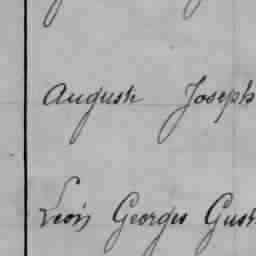 Auguste Joseph
Léon Georges Gust